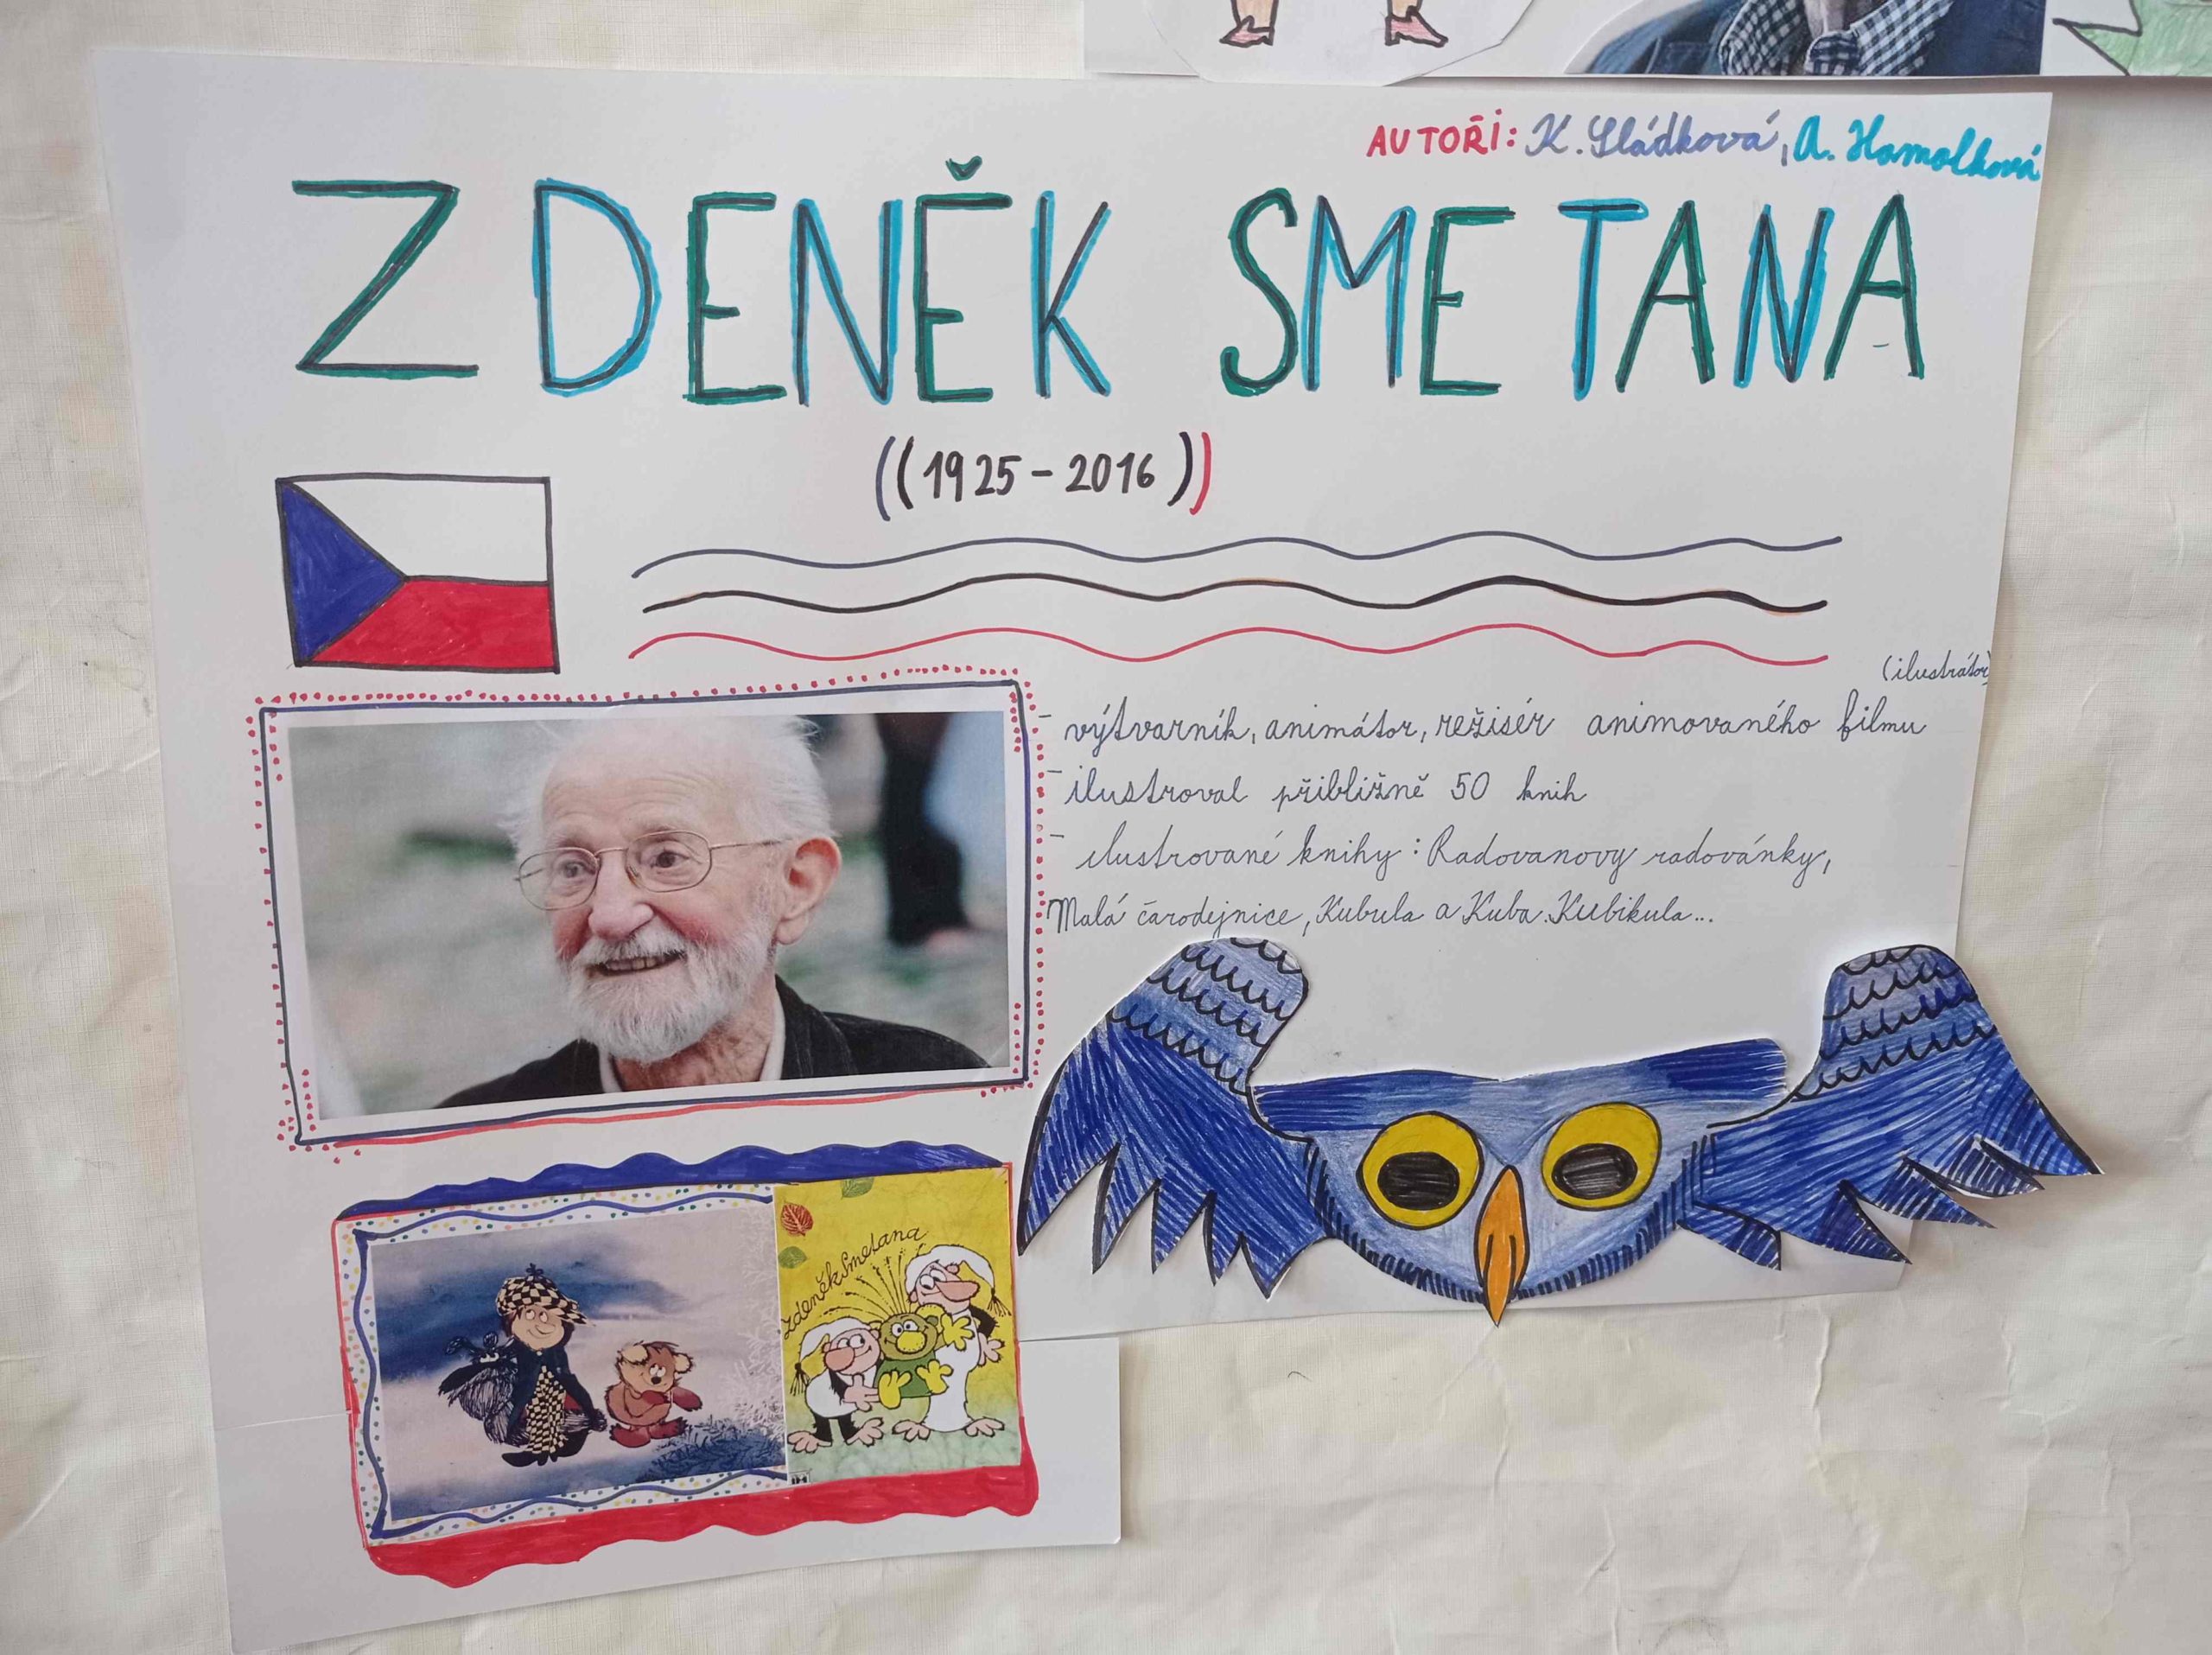 AUTOŘI: K. Sládková, A. Hamalková
ZDENĚK SMETANA
((1925 - 2016))
(ilustrátor)
- výtvarník, animátor, režisér animovaného filmu
- ilustroval přibližně 50 knih
- ilustrované knihy: Radovanovy radovánky,
Malá čarodejnice, Kubula a Kuba Kubikula...
Zdeněk Smetana